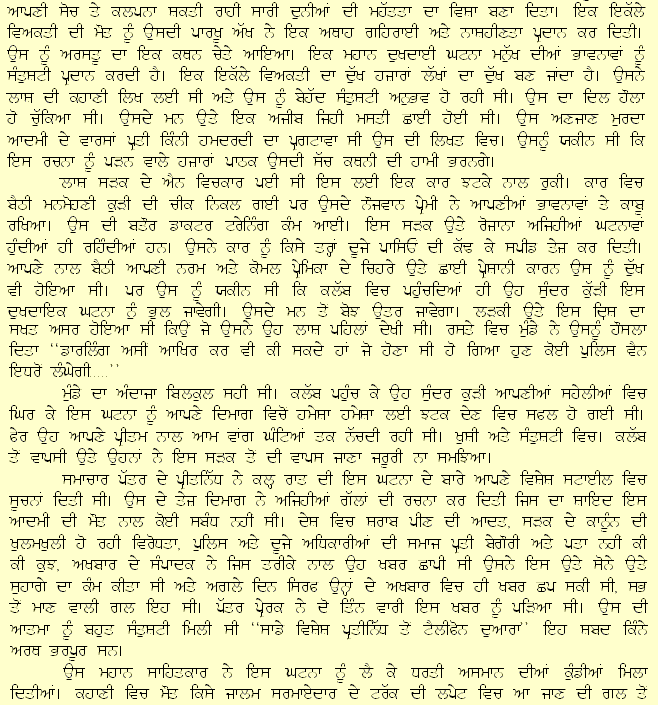 ਆਪਣੀ ਸੋਚ ਤੇ ਕਲਪਨਾ ਸ਼ਕਤੀ ਰਹੀ ਸਾਰੀ ਦੁਨੀਆਂ ਦੀ ਮਹੱਤਤਾ ਦਾ ਵਿਸ਼ਾ ਬਣਾ ਦਿਤਾ। ਇਕ ਇਕੱਲੇ
ਵਿਅਕਤੀ ਦੀ ਮੌਤ ਨੂੰ ਉਸਦੀ ਪਾਰਖੂ ਅੱਖ ਨੇ ਇਕ ਅਥਾਹ ਗਹਿਰਾਈ ਅਤੇ ਨਾਸ਼ਹੀਣਤਾ ਪ੍ਰਦਾਨ ਕਰ ਦਿਤੀ।
ਉਸ ਨੂੰ ਅਰਸਤੂ ਦਾ ਇਕ ਕਥਨ ਚੇਤੇ ਆਇਆ। ਇਕ ਮਹਾਨ ਦੁਖਦਾਈ ਘਟਨਾ ਮਨੁੱਖ ਦੀਆਂ ਭਾਵਨਾਵਾਂ ਨੂੰ
ਸੰਤੁਸ਼ਟੀ ਪ੍ਰਦਾਨ ਕਰਦੀ ਹੈ। ਇਕ ਇਕੱਲੇ ਵਿਅਕਤੀ ਦਾ ਦੁੱਖ ਹਜ਼ਾਰਾਂ ਲੱਖਾਂ ਦਾ ਦੁੱਖ ਬਣ ਜਾਂਦਾ ਹੈ। ਉਸਨੇ
ਲਾਸ਼ ਦੀ ਕਹਾਣੀ ਲਿਖ ਲਈ ਸੀ ਅਤੇ ਉਸ ਨੂੰ ਬੇਹੱਦ ਸੰਤੁਸ਼ਟੀ ਅਨੁਭਵ ਹੋ ਰਹੀ ਸੀ। ਉਸ ਦਾ ਦਿਲ ਹੌਲਾ
ਹੋ ਚੁੱਕਿਆ ਸੀ। ਉਸਦੇ ਮਨ ਉਤੇ ਇਕ ਅਜੀਬ ਜਿਹੀ ਮਸਤੀ ਛਾਈ ਹੋਈ ਸੀ। ਉਸ ਅਣਜਾਣ ਮੁਰਦਾ
ਆਦਮੀ ਦੇ ਵਾਰਸਾਂ ਪ੍ਰਤੀ ਕਿੰਨੀ ਹਮਦਰਦੀ ਦਾ ਪ੍ਰਗਟਾਵਾ ਸੀ ਉਸ ਦੀ ਲਿਖਤ ਵਿਚ। ਉਸਨੂੰ ਯਕੀਨ ਸੀ ਕਿ
ਇਸ ਰਚਨਾ ਨੂੰ ਪੜਨ ਵਾਲੇ ਹਜ਼ਾਰਾਂ ਪਾਠਕ ਉਸਦੀ ਸੱਚ ਕਥਨੀ ਦੀ ਹਾਮੀ ਭਰਨਗੇ।
ਲਾਸ਼ ਸੜਕ ਦੇ ਐਨ ਵਿਚਕਾਰ ਪਈ ਸੀ ਇਸ ਲਈ ਇਕ ਕਾਰ ਝਟਕੇ ਨਾਲ ਰੁਕੀ। ਕਾਰ ਵਿਚ
ਬੈਠੀ ਮਨਮੋਹਣੀ ਕੁੜੀ ਦੀ ਚੀਕ ਨਿਕਲ ਗਈ ਪਰ ਉਸਦੇ ਨੌਜਵਾਨ ਪ੍ਰੇਮੀ ਨੇ ਆਪਣੀਆਂ ਭਾਵਨਾਵਾਂ ਤੇ ਕਾਬੂ
ਰਖਿਆ। ਉਸ ਦੀ ਬਤੌਰ ਡਾਕਟਰ ਟਰੇਨਿੰਗ ਕੰਮ ਆਈ। ਇਸ ਸੜਕ ਉਤੇ ਰੋਜ਼ਾਨਾ ਅਜਿਹੀਆਂ ਘਟਨਾਵਾਂ
ਹੁੰਦੀਆਂ ਹੀ ਰਹਿੰਦੀਆਂ ਹਨ। ਉਸਨੇ ਕਾਰ ਨੂੰ ਕਿਸੇ ਤਰ੍ਹਾਂ ਦੂਜੇ ਪਾਸਿਓ ਦੀ ਕੱਢ ਕੇ ਸਪੀਡ ਤੇਜ਼ ਕਰ ਦਿਤੀ।
ਆਪਣੇ ਨਾਲ ਬੈਠੀ ਆਪਣੀ ਨਰਮ ਅਤੇ ਕੋਮਲ ਪ੍ਰੇਮਿਕਾ ਦੇ ਚਿਹਰੇ ਉਤੇ ਛਾਈ ਪ੍ਰੇਸ਼ਾਨੀ ਕਾਰਨ ਉਸ ਨੂੰ ਦੁੱਖ
ਵੀ ਹੋਇਆ ਸੀ। ਪਰ ਉਸ ਨੂੰ ਯਕੀਨ ਸੀ ਕਿ ਕਲੱਬ ਵਿਚ ਪਹੁੰਚਦਿਆਂ ਹੀ ਉਹ ਸੁੰਦਰ ਕੁੱੜੀ ਇਸ
ਦੁਖਦਾਇਕ ਘਟਨਾ ਨੂੰ ਭੁਲ ਜਾਵੇਗੀ। ਉਸਦੇ ਮਨ ਤੋਂ ਬੋਝ ਉਤਰ ਜਾਵੇਗਾ। ਲੜਕੀ ਉਤੇ ਇਸ ਦ੍ਰਿਸ਼ ਦਾ
ਸਖਤ ਅਸਰ ਹੋਇਆ ਸੀ ਕਿਉਂ ਜੋ ਉਸਨੇ ਉਹ ਲਾਸ਼ ਪਹਿਲਾਂ ਦੇਖੀ ਸੀ। ਰਸਤੇ ਵਿਚ ਮੁੰਡੇ ਨੇ ਉਸਨੂੰ ਹੌਂਸਲਾ
ਦਿਤਾ ‘‘ਡਾਰਲਿੰਗ ਅਸੀਂ ਆਖਿਰ ਕਰ ਵੀ ਕੀ ਸਕਦੇ ਹਾਂ ਜੋ ਹੋਣਾ ਸੀ ਹੋ ਗਿਆ ਹੁਣ ਕੋਈ ਪੁਲਿਸ ਵੈਨ
ਇਧਰੋਂ ਲੰਘੇਗੀ.....’’
ਮੁੰਡੇ ਦਾ ਅੰਦਾਜ਼ਾ ਬਿਲਕੁਲ ਸਹੀ ਸੀ। ਕਲੱਬ ਪਹੁੰਚ ਕੇ ਉਹ ਸੁੰਦਰ ਕੁੜੀ ਆਪਣੀਆਂ ਸਹੇਲੀਆਂ ਵਿਚ
ਘਿਰ ਕੇ ਇਸ ਘਟਨਾ ਨੂੰ ਆਪਣੇ ਦਿਮਾਗ ਵਿਚੋਂ ਹਮੇਸ਼ਾ ਹਮੇਸ਼ਾ ਲਈ ਝਟਕ ਦੇਣ ਵਿਚ ਸਫਲ ਹੋ ਗਈ ਸੀ।
ਫੇਰ ਉਹ ਆਪਣੇ ਪ੍ਰੀਤਮ ਨਾਲ ਆਮ ਵਾਂਗ ਘੰਟਿਆਂ ਤਕ ਨੱਚਦੀ ਰਹੀ ਸੀ। ਖੁਸ਼ੀ ਅਤੇ ਸੰਤੁਸ਼ਟੀ ਵਿਚ। ਕਲੱਬ
ਤੋਂ ਵਾਪਸੀ ਉਤੇ ਉਹਨਾਂ ਨੇ ਇਸ ਸੜਕ ਤੋਂ ਦੀ ਵਾਪਸ ਜਾਣਾ ਜ਼ਰੂਰੀ ਨਾ ਸਮਝਿਆ।
ਸਮਾਚਾਰ ਪੱਤਰ ਦੇ ਪ੍ਰੀਤਨਿੱਧ ਨੇ ਕਲ੍ਹ ਰਾਤ ਦੀ ਇਸ ਘਟਨਾ ਦੇ ਬਾਰੇ ਆਪਣੇ ਵਿਸ਼ੇਸ਼ ਸਟਾਈਲ ਵਿਚ
ਸੂਚਨਾਂ ਦਿਤੀ ਸੀ। ਉਸ ਦੇ ਤੇਜ਼ ਦਿਮਾਗ ਨੇ ਅਜਿਹੀਆਂ ਗੱਲਾਂ ਦੀ ਰਚਨਾ ਕਰ ਦਿਤੀ ਜਿਸ ਦਾ ਸ਼ਾਇਦ ਇਸ
ਆਦਮੀ ਦੀ ਮੌਤ ਨਾਲ ਕੋਈ ਸਬੰਧ ਨਹੀਂ ਸੀ। ਦੇਸ਼ ਵਿਚ ਸ਼ਰਾਬ ਪੀਣ ਦੀ ਆਦਤ, ਸੜਕ ਦੇ ਕਾਨੂੰਨ ਦੀ
ਖੁਲਮਖੁਲੀ ਹੋ ਰਹੀ ਵਿਰੋਧਤਾ, ਪੁਲਿਸ ਅਤੇ ਦੂਜੇ ਅਧਿਕਾਰੀਆਂ ਦੀ ਸਮਾਜ ਪ੍ਰਤੀ ਬੇਗੌਰੀ ਅਤੇ ਪਤਾ ਨਹੀਂ ਕੀ
ਕੀ ਕੁਝ, ਅਖਬਾਰ ਦੇ ਸੰਪਾਦਕ ਨੇ ਜਿਸ ਤਰੀਕੇ ਨਾਲ ਉਹ ਖਬਰ ਛਾਪੀ ਸੀ ਉਸਨੇ ਇਸ ਉਤੇ ਸੋਨੇ ਉਤੇ
ਸੁਹਾਗੇ ਦਾ ਕੰਮ ਕੀਤਾ ਸੀ ਅਤੇ ਅਗਲੇ ਦਿਨ ਸਿਰਫ ਉਨ੍ਹਾਂ ਦੇ ਅਖਬਾਰ ਵਿਚ ਹੀ ਖਬਰ ਛਪ ਸਕੀ ਸੀ, ਸਭ
ਤੋਂ ਮਾਣ ਵਾਲੀ ਗਲ ਇਹ ਸੀ। ਪੱਤਰ ਪ੍ਰੇਰਕ ਨੇ ਦੋ ਤਿੰਨ ਵਾਰੀ ਇਸ ਖਬਰ ਨੂੰ ਪੜਿਆ ਸੀ। ਉਸ ਦੀ
ਆਤਮਾ ਨੂੰ ਬਹੁਤ ਸੰਤੁਸ਼ਟੀ ਮਿਲੀ ਸੀ ‘‘ਸਾਡੇ ਵਿਸ਼ੇਸ਼ ਪ੍ਰਤੀਨਿੱਧ ਤੋਂ ਟੈਲੀਫੋਨ ਦੁਆਰਾ’’ ਇਹ ਸ਼ਬਦ ਕਿੰਨੇ
ਅਰਥ ਭਰਪੂਰ ਸਨ।
ਉਸ ਮਹਾਨ ਸਾਹਿਤਕਾਰ ਨੇ ਇਸ ਘਟਨਾ ਨੂੰ ਲੈ ਕੇ ਧਰਤੀ ਅਸਮਾਨ ਦੀਆਂ ਕੁੰਡੀਆਂ ਮਿਲਾ
ਦਿਤੀਆਂ। ਕਹਾਣੀ ਵਿਚ ਮੌਤ ਕਿਸੇ ਜ਼ਾਲਮ ਸਰਮਾਏਦਾਰ ਦੇ ਟਰੱਕ ਦੀ ਲਪੇਟ ਵਿਚ ਆ ਜਾਣ ਦੀ ਗਲ ਤੋਂ